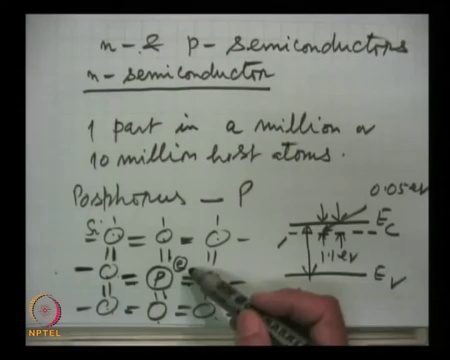 n- & p- semiconductors
n- semiconductor
1 part in a million or
10 million host atoms.
Posphorus - P
0.05 eV
Si
Ec
P
e
1.1 eV
Ev
NPTEL